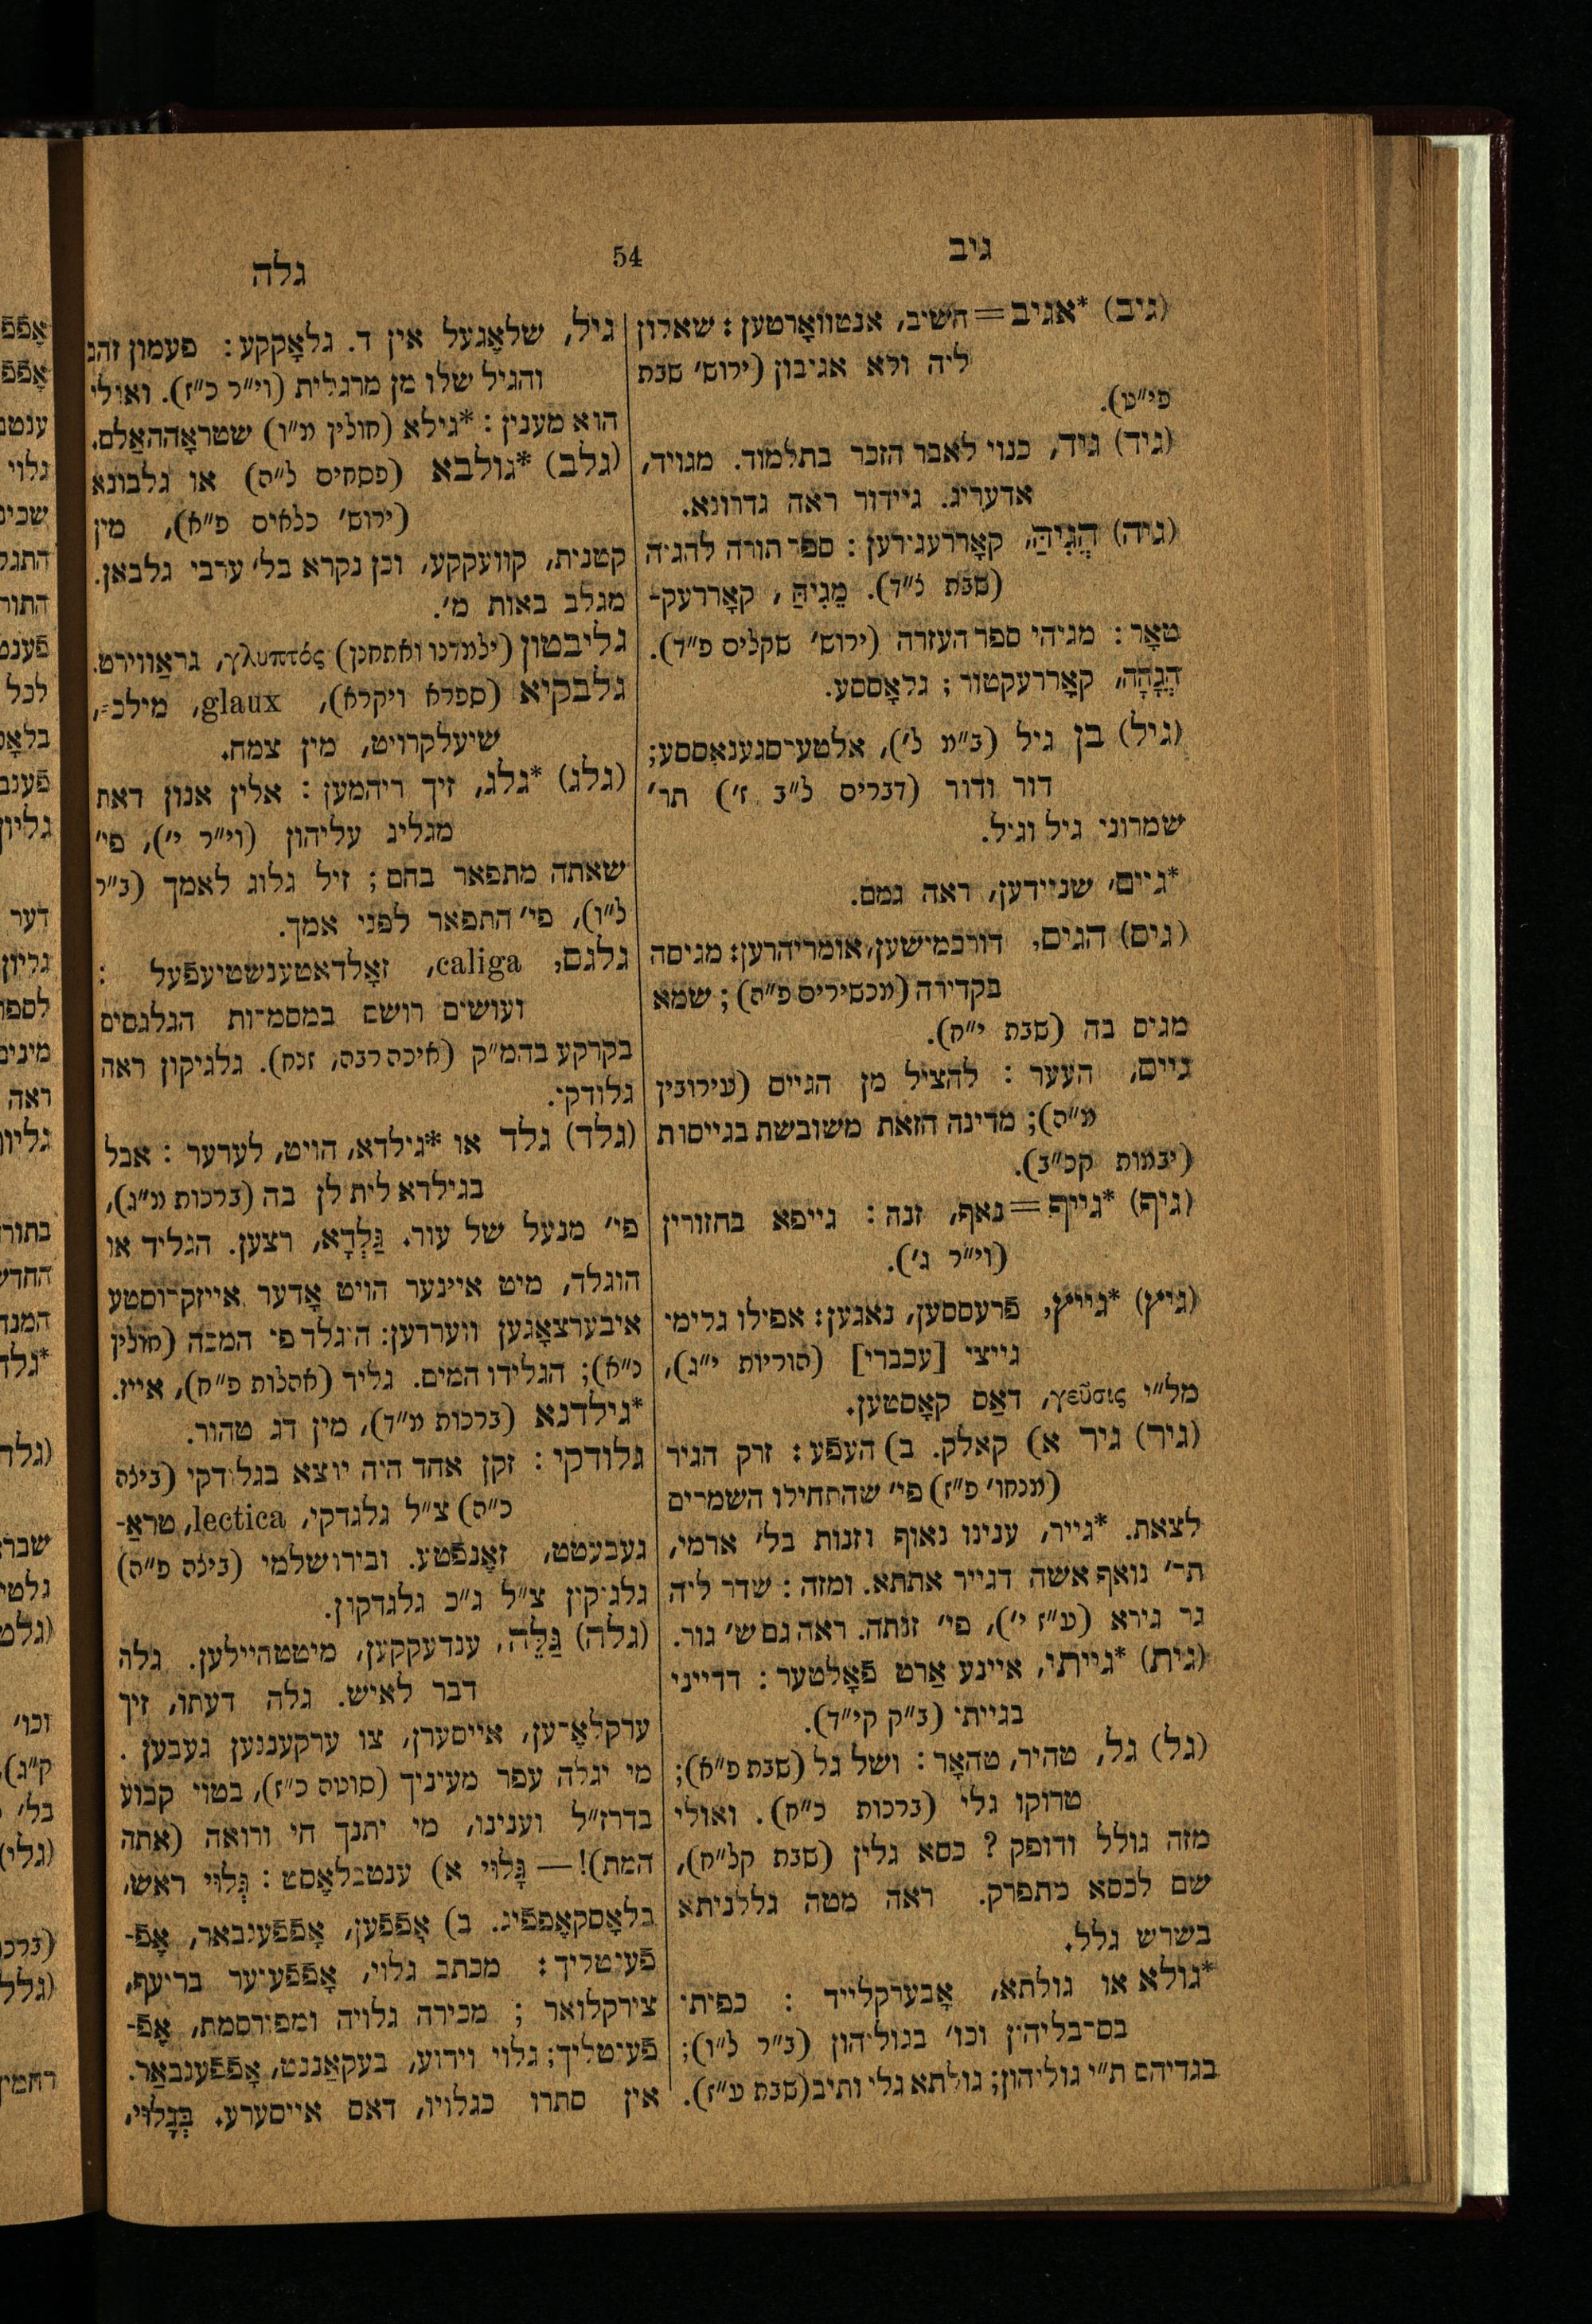 גיב
54
גלה
(גיב) *אגיב=השיב, אנטוואָרטען: שאלון
ליה ולא אגיבון (ירוש׳ שבת
פי״ט).
(גיד) גיד, כנוי לאבר הזכר בתלמוד. מגויד,
אדעריג. גיידור ראה גדרונא.
(גיה) הֲגִיהַּ, קאָררעגירען: ספר תורה להגיה
(שבת ל״ד). מַגִּיהַּ, קאָררעק-
טאָר: מגיהי ספר העזרה (ירוש׳ שקלים פ״ד).
הֲגָהָה, קאָררעקטור; גלאָססע.
(גיל) בן גיל (ב״מ ל׳), אלטערסגענאָססע;
דור ודור (דברים ל״ב ז׳) תר׳
שמרוני גיל וגיל.
*גיים, שניידען, ראה גמם.
(גים) הגים, דורכמישען, אומריהרען: מגיסה
בקדירה (מכשירים פ״ה); שמא
מגים בה (שבת י״ח).
גיים, העער: להציל מן הגיים (עירובין
מ״ה); מדינה הזאת משובשת בגייסות
(יבמות קכ״ב).
(גיף) *גייף=נאף, זנה: גייפא בחזורין
(וי״ר ג׳).
(גיץ) *גייץ, פֿרעססען, נאגען: אפילו גלימי
גייצי [עכברי] (הוריות י״ג),
מל״י γεῦσις, דאַס קאָסטען.
(גיר) גיר א) קאלק. ב) העפֿע: זרק הגיר
(מנחו׳ פ״ז) פי׳ שהתחילו השמרים
לצאת. *גייר, ענינו נאוף וזנות בל׳ ארמי,
תר׳ נואף אשה דגייר אתתא. ומזה: שדר ליה
גר גירא (ע״ז י׳), פי׳ זנתה. ראה גם ש׳ גור.
(גית) *גייתי, איינע אַרט פֿאָלטער: דדייני
בגייתי (ב״ק קי״ד).
(גל) גל, טהיר, טהאָר: ושל גל (שבת פ״א);
טרוקו גלי (ברכות כ״ח). ואולי
מזה גולל ודופק? כסא גלין (שבת קל״ח),
שם לכסא מתפרק. ראה מטה גללניתא
בשרש גלל.
*גולא או גולתא, אָבערקלייד: כפיתי
בסרבליהון וכו׳ בגוליהון (ב״ר ל״ו);
בגדיהם ת״י גוליהון; גולתא גלי ותיב (שבת ע״ז).
גיל, שלאָגעל אין ד. גלאָקקע: פעמון זהב
והגיל שלו מן מרגלית (וי״ר כ״ז). ואולי
הוא מענין: *גילא (חולין מ״ו) שטראָההאַלם.
(גלב) *גולבא (פסחים ל״ה) או גלבונא
(ירוש׳ כלאים פ״א), מין
קטנית, קוועקקע, וכן נקרא בל׳ ערבי גלבאן.
מגלב באות מ׳.
גליבטון (ילמדנו ואתחנן) γλυπτός, גראַווירט.
גלבקיא (ספרא ויקרא), glaux, מילכ=,
שיעלקרויט, מין צמח.
(גלג) *גלג, זיך ריהמען: אלין אנון דאת
מגליג עליהון (וי״ר י׳), פי׳
שאתה מתפאר בהם; זיל גלוג לאמך (ב״ר
ל״ו), פי׳ התפאר לפני אמך.
גלגם, caliga, זאָלדאטענשטיעפֿעל:
ועושים רושם במסמרות הגלגסים
בקרקע בהמ״ק (איכה רבה, זנח). גלגיקון ראה
גלודקי.
(גלד) גלד או *גילדא, הויט, לערער: אבל
בגילדא לית לן בה (ברכות מ״ג),
פי׳ מנעל של עור. גַּלְדָּא, רצען. הגליד או
הוגלד, מיט איינער הויט אָדער אייזקרוסטע
איבערצאָגען ווערדען: היגלד פי המכה (חולין
כ״א); הגלידו המים. גליד (אהלות פ״ח), אייז.
*גילדנא (ברכות מ״ד), מין דג טהור.
גלודקי: זקן אחד היה יוצא בגלודקי (ביצה
כ״ה) צ״ל גלגדקי, lectica, טראַ-
געבעטט, זאָנפֿטע. ובירושלמי (ביצה פ״ה)
גלגיקין צ״ל ג״כ גלגדקון.
(גלה) גַּלֵּה, ענדעקקען, מיטטהיילען. גלה
דבר לאיש. גלה דעתו, זיך
ערקלאָרען, אייסערן, צו ערקעננען געבען.
מי יגלה עפר מעיניך (סוטה כ״ז), בטוי קבוע
בדרז״ל וענינו, מי יתנך חי ורואה (אתה
המת)! — גָּלוּי א) ענטבלאָסט: גְּלוּי ראש,
בלאָסקאָפפֿיג. ב) אָפֿפֿען, אָפֿפֿענבאר, אָפֿ-
פֿענטליך: מכתב גלוי, אָפֿפֿענער בריעף,
צירקלואר; מכירה גלויה ומפורסמת, אָפֿ-
פֿענטליך; גלוי וידוע, בעקאַננט, אָפֿפֿענבאַר.
אין סתרו כגלויו, דאס אייסערע. בְּגָלוּי,